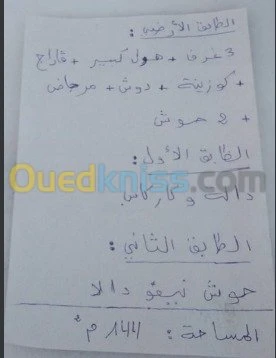 الطابق الأرضي:
3 غرف + هول كبير + قاراج
+ كوزينة + دوش + مرحاض
+ 2 حوش
الطابق الأول:
Ouedkniss.com
دالة و كاركاس
الطابق الثاني:
حوش نيفو دالا
المساحة: 144 م²